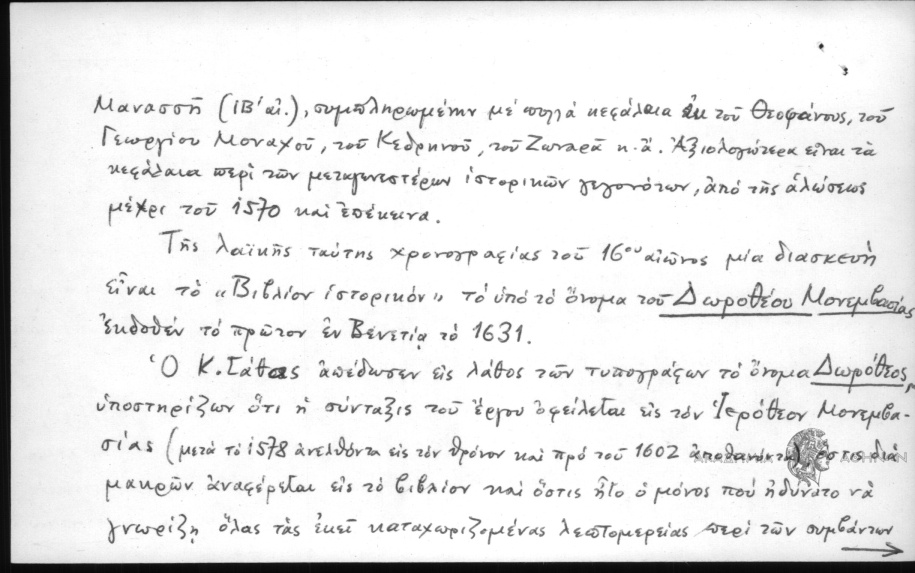 Μανασσῆ (ΙΒ' αἰ.), συμπληρωμένην μὲ πολλὰ κεφάλαια ἐκ τοῦ Θεοφάνους, τοῦ
Γεωργίου Μοναχοῦ, τοῦ Κεδρηνοῦ, τοῦ Ζωναρᾶ κ.ἄ. Ἀξιολογώτερα εἶναι τὰ
κεφάλαια περὶ τῶν μεταγενεστέρων ἱστορικῶν γεγονότων, ἀπὸ τῆς ἁλώσεως
μέχρι τοῦ 1570 καὶ ἐπέκεινα.
Τῆς λαϊκῆς ταύτης χρονογραφίας τοῦ 16ου αἰῶνος μία διασκευὴ
εἶναι τὸ «Βιβλίον ἱστορικόν» τὸ ὑπὸ τὸ ὄνομα τοῦ Δωροθέου Μονεμβασίας
ἐκδοθὲν τὸ πρῶτον ἐν Βενετίᾳ τὸ 1631.
Ὁ Κ. Σάθας ἀπέδωσεν εἰς λάθος τῶν τυπογράφων τὸ ὄνομα Δωρόθεος,
ὑποστηρίζων ὅτι ἡ σύνταξις τοῦ ἔργου ὀφείλεται εἰς τὸν Ἱερόθεον Μονεμβα-
σίας (μετὰ τὸ 1578 ἀνελθόντα εἰς τὸν θρόνον καὶ πρὸ τοῦ 1602 ἀποθανόντα) ὅστις διὰ
μακρῶν ἀναφέρεται εἰς τὸ βιβλίον καὶ ὅστις ἦτο ὁ μόνος ποὺ ἠδύνατο νὰ
γνωρίζῃ ὅλας τὰς ἐκεῖ καταχωριζομένας λεπτομερείας περὶ τῶν συμβάντων
ΑΚΑΔΗΜΙΑ ΑΘΗΝΩΝ